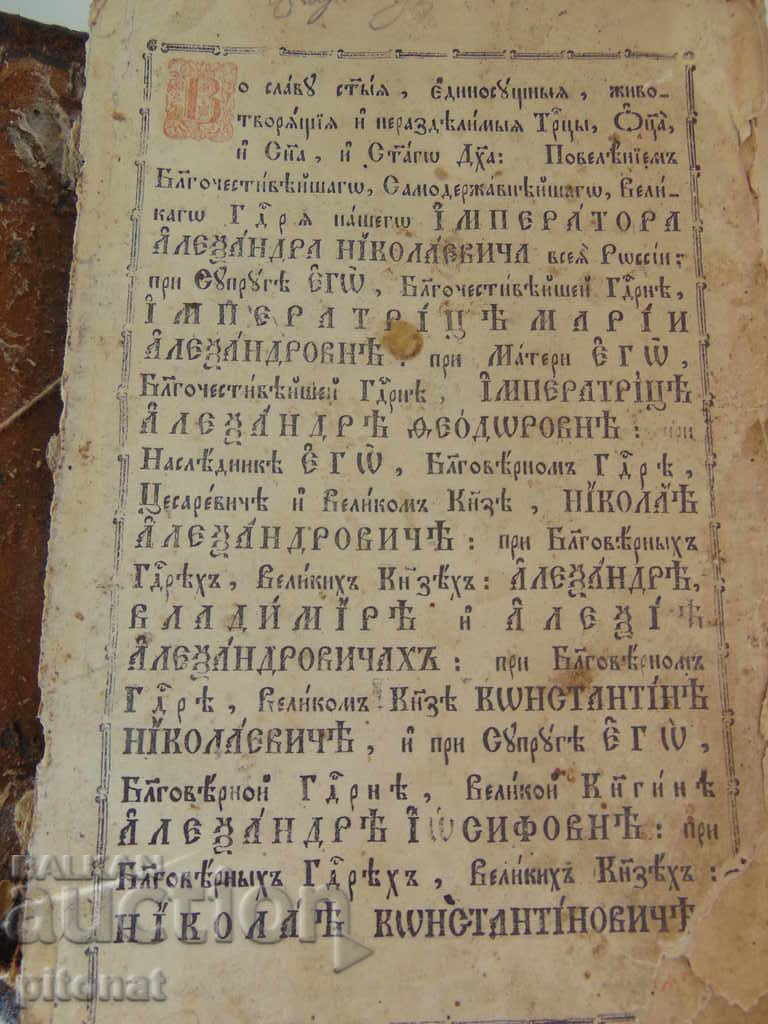 Во славу ст҃ыѧ, є҆диносущныѧ, живо-
творѧщіѧ и҆ нераздѣлимыѧ Трⷪ҇цы, Ѻ҆ц҃а̀,
и҆ Сн҃а, и҆ Ст҃а́гѡ Дх҃а: Повелѣ́нїемъ
Бл҃гочести́вѣйшагѡ, Самодержа́внѣйшагѡ, Вели́-
кагѡ Гдⷭ҇рѧ на́шегѡ І҆МПЕРА́ТОРА
А҆ЛЕѮА́НДРА НІКОЛА́ЕВИЧА всеѧ̀ Рѡссі́и:
при Сꙋпрꙋ́гѣ Є҆ГѠ̀, Бл҃гочести́вѣйшей Гдⷭ҇рнѣ,
І҆МПЕРАТРІ́ЦѢ МАРІ́И
А҆ЛЕѮА́НДРОВНѢ: при Ма́тери Є҆ГѠ̀,
Бл҃гочести́вѣйшей Гдⷭ҇рнѣ, І҆МПЕРАТРІ́ЦѢ
А҆ЛЕѮА́НДРѢ ѲЕО́ДѠРОВНѢ: при
Наслѣ́дникѣ Є҆ГѠ̀, Бл҃говѣ́рномъ Гдⷭ҇рѣ,
Цесаре́вичѣ и҆ Вели́комъ Кн҃зѣ, НІКОЛА́Ѣ
А҆ЛЕѮА́НДРОВИЧѢ: при Бл҃говѣ́рныхъ
Гдⷭ҇рехъ, Вели́кихъ Кн҃зѣхъ: А҆ЛЕѮА́НДРѢ,
ВЛАДИ́МІРѢ и҆ А҆ЛЕѮІ́Ѣ
А҆ЛЕѮА́НДРОВИЧАХЪ: при Бл҃говѣ́рномъ
Гдⷭ҇рѣ, Вели́комъ Кн҃зѣ КѠНСТАНТІ́НѢ
НІКОЛА́ЕВИЧѢ, и҆ при Сꙋпрꙋ́гѣ Є҆ГѠ̀,
Бл҃говѣ́рной Гдⷭ҇рнѣ, Вели́кой Кн҃ги́нѣ
А҆ЛЕѮА́НДРѢ І҆Ѡ́СИФОВНѢ: при
Бл҃говѣ́рныхъ Гдⷭ҇рехъ, Вели́кихъ Кн҃зѣхъ:
НІКОЛА́Ѣ КѠНСТАНТІ́НОВИЧѢ
BALKAN
auction
pitonat